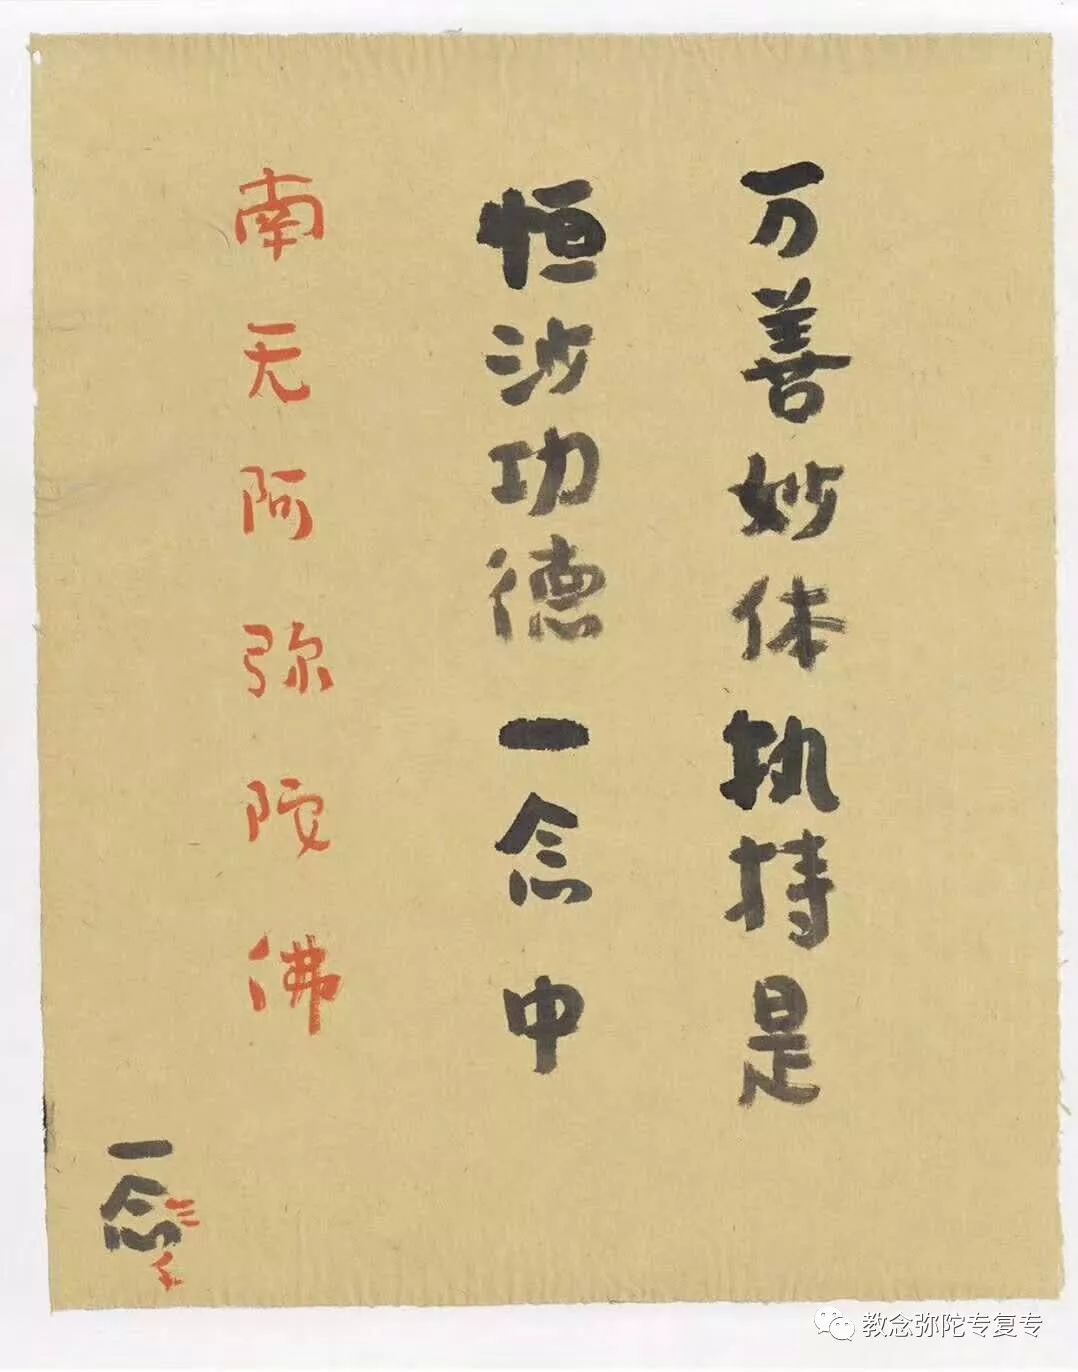 万善妙体执持是
恒沙功德一念中
南无阿弥陀佛
一念
三千
教念弥陀专复专